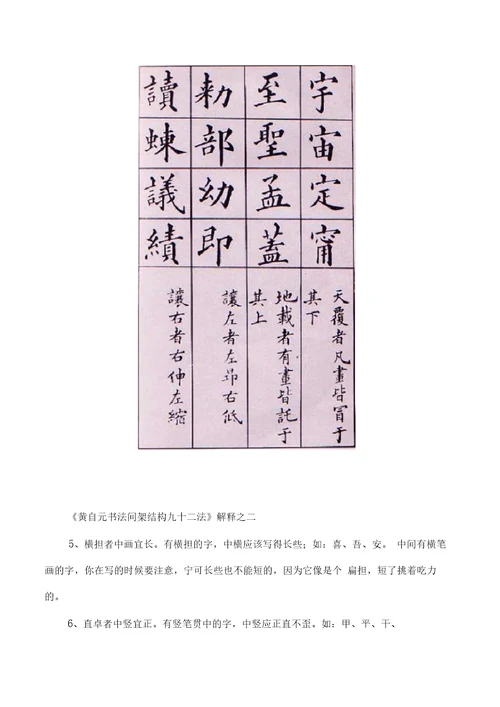 宇宙定甯
天覆者凡畫皆冒于
其下
至聖孟蓋
地載者有畫皆託于
其上
勅部幼即
讓左者左昂右低
讀蝀議績
讓右者右伸左縮
《黄自元书法间架结构九十二法》解释之二
5、横担者中画宜长。有横担的字，中横应该写得长些；如：喜、吾、安。 中间有横笔
画的字，你在写的时候要注意，宁可长些也不能短的，因为它像是个 扁担，短了挑着吃力
的。
6、直卓者中竖宜正。有竖笔贯中的字，中竖应正直不歪。如：甲、平、干、